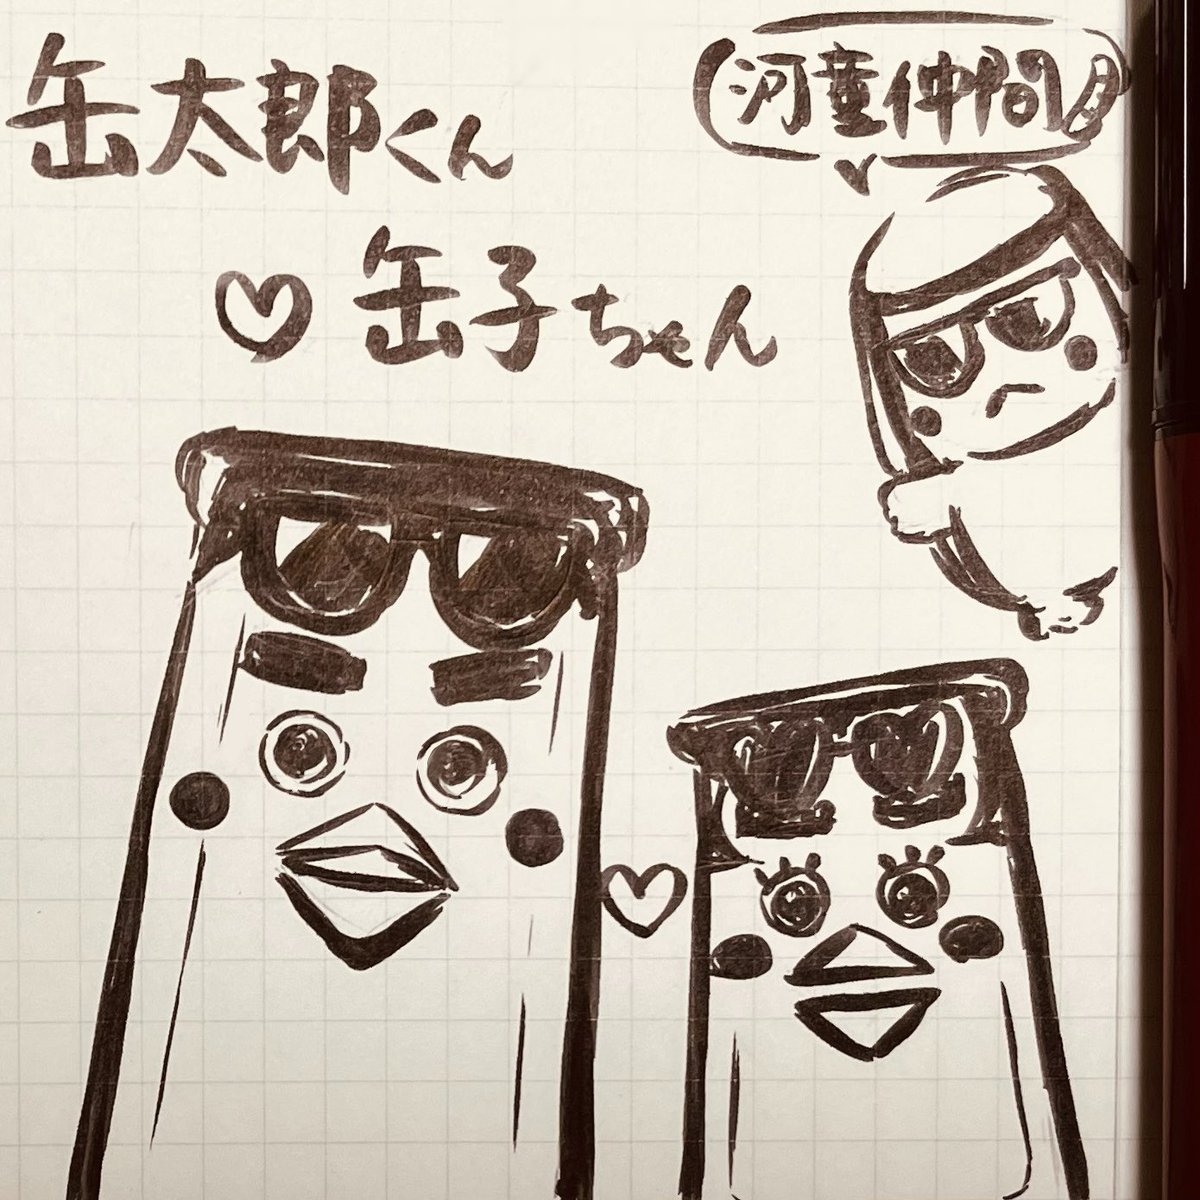 缶太郎くん
♡缶子ちゃん
河童仲間